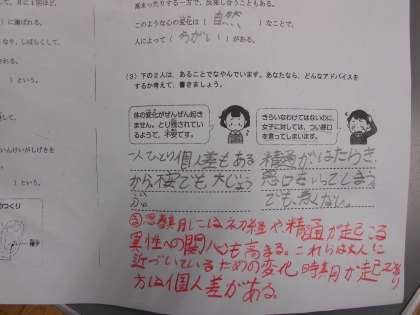 月に1回ほど、
に運ばれる。
なり、しばらくして、
）という。
）という。
んけいがしげきを
）という。
のつくり
精子
高まったりする一方で、反発し合うこともある。
このような心の変化は（自然）なことで、
人によって（ちがい）がある。
（3）下の2人は、あることでなやんでいます。あなたなら、どんなアドバイスを
するか考えて、書きましょう。
体の変化がぜんぜん起き
ません。とり残されてい
るようで、不安です。
きらいなわけではないのに、
女子に対しては、つい悪口
を言ってしまいます。
一人ひとり個人差もある
から不安でも大じょう
ぶ。
精通がはたらき
悪口をいってしまう
でも、
思春期には初経や精通が起こる
異性への関心も高まる。これらは大人に
近づいているための変化 時期が起こり
方は個人差がある。